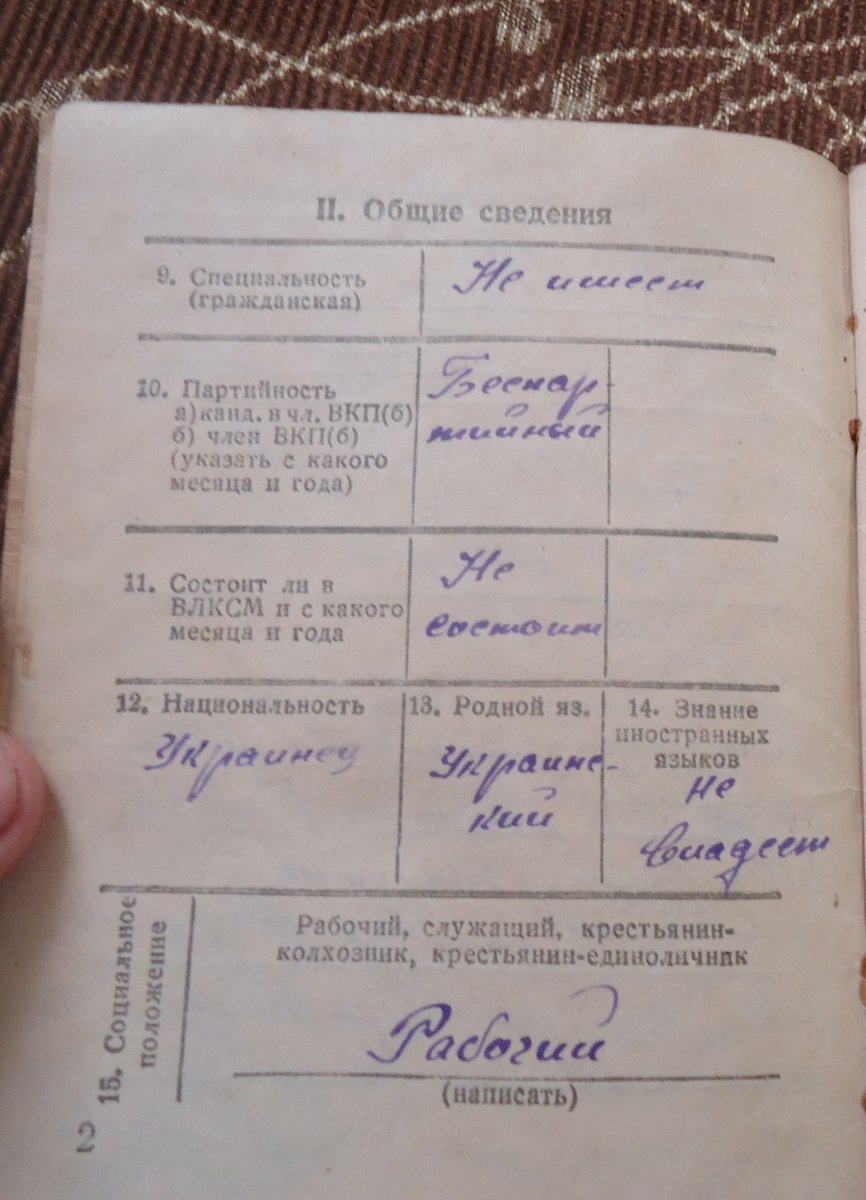 II. Общие сведения
9. Специальность
(гражданская)
Не имеет
10. Партийность
а) канд. в чл. ВКП(б)
б) член ВКП(б)
(указать с какого
месяца и года)
Беспар-
тийный
11. Состоит ли в
ВЛКСМ и с какого
месяца и года
Не
состоит
12. Национальность
Украинец
13. Родной яз.
Украинс-
кий
14. Знание
иностранных
языков
не
владеет
15. Социальное
положение
Рабочий, служащий, крестьянин-
колхозник, крестьянин-единоличник
Рабочий
(написать)
2